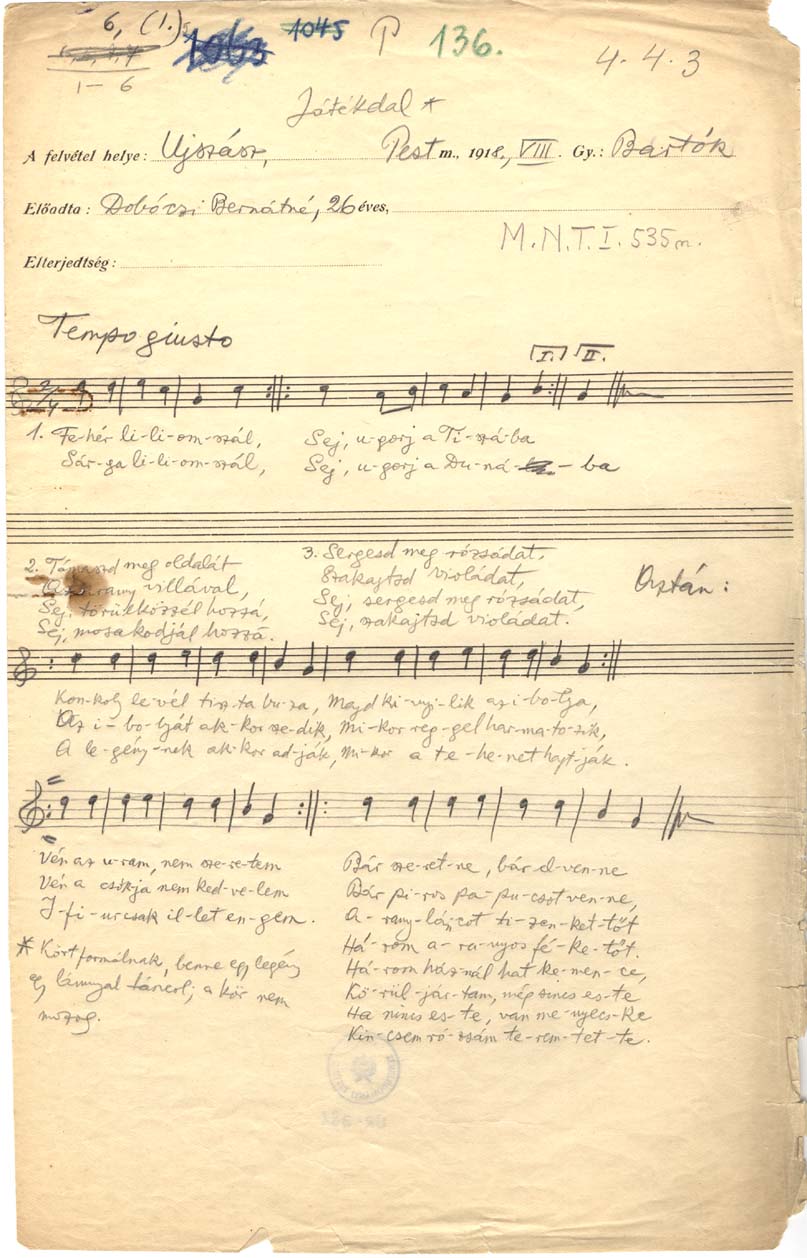 6, (1.)
1045 P 136. 4. 4. 3
1– 6
Játékdal *
A felvétel helye: Ujszász, Pest m., 1918, VIII. Gy.: Bartók
Előadta: Dobóczi Bernátné, 26 éves,
M.N.T.I. 535 m.
Elterjedtség:
Tempo giusto
I. II.
2/4
1. Fe-hér li-li-om-szál, Sej, u-gorj a Ti-szá-ba
Sár-ga li-li-om-szál, Sej, u-gorj a Du-ná- – ba
2. Támaszd meg oldalát
villával,
Sej, törülközzél hozzá,
Sej, mosakodjál hozzá.
3. Sergesd meg rózsádat,
Szakajtsd violádat,
Sej, sergesd meg rózsádat,
Sej, szakajtsd violádat.
Osztán:
Kon-koly le-vél tisz-ta bu-za, Majd ki-nyi-lik az i-bo-lya,
Az i-bo-lyát ak-kor sze-dik, Mi-kor reg-gel har-ma-to-zik,
A le-gény-nek ak-kor ad-ják, Mi-kor a te-he-net hajt-ják.
Vén az u-ram, nem sze-re-tem
Vén a csókja nem ked-ve-lem
I-fi-ur csak il-let en-gem.
Bár sze-ret-ne, bár el-ven-ne
Bár pi-ros pa-pu-csot ven-ne,
A-rany-lán-cot ti-zen-ket-tőt
Há-rom a-ra-nyos fé-ke-tőt.
Há-rom ház-nál hat ke-men-ce,
Kö-rül-jár-tam, még sincs es-te
Ha nincs es-te, van me-nyecs-ke
Kin-csem ró-zsám te-rem-tet-te.
* Kört formálnak, benne egy legény
egy lánnyal táncol; a kör nem
mozog.